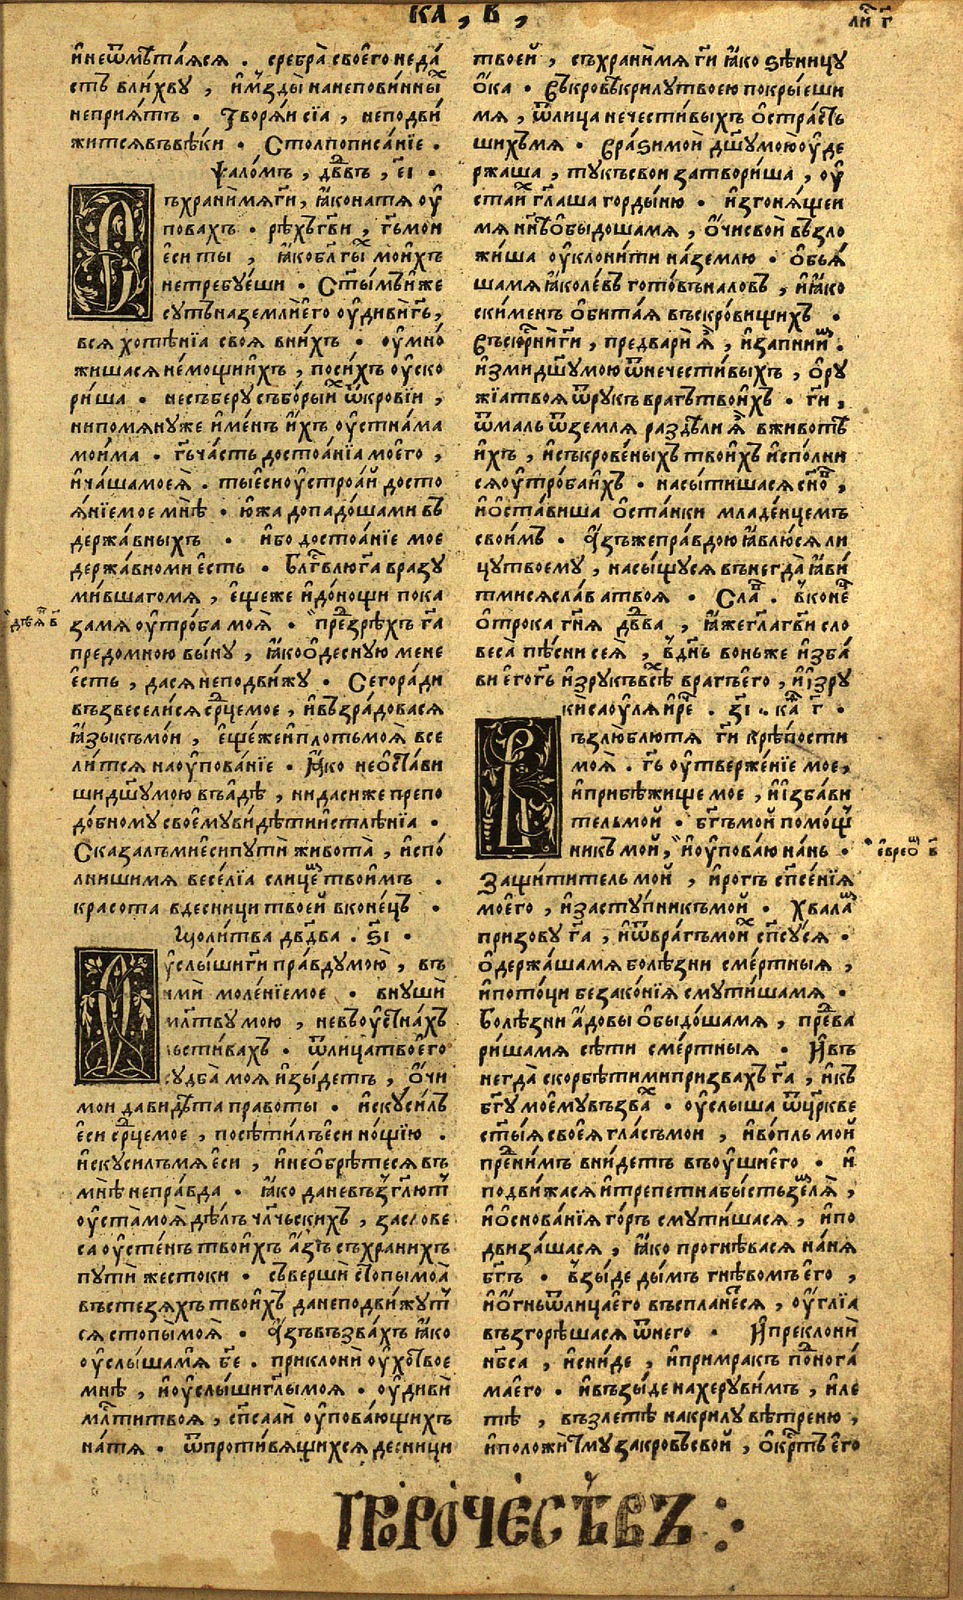 ка , в ,
ли г҃
и҆ неѿмѣтаꙗсѧ . сребра̀ своего̀ не да́
стъ влихву , и҆ мъзды̀ на неповинны́х
неприѧ́тъ . Творѧ́и сїа , неподви́
житсѧ въвѣ́ки . Столпописа́нїе .
Ѱало́мъ , дв҃въ , е҃і .
Съхрани́мѧ гд҃и , ꙗ҆́ко на тѧ оу҆
пова́хъ . рѣ́хъ гв҃и , гь҃ мои
є҆си ты̀ , ꙗ҆́ко бл҃гы́х мои́хъ
не требꙋ́еши . Ст҃ы́мъ и҆же
сꙋ́ть на землѝ е҆го̀ оу҆диви́ гь҃ ,
всѧ хотѣ́нїа своѧ̀ в ни́хъ . оу҆мно́
жишасѧ не́мощи и҆́хъ , поси́хъ оу҆ско
ри́ша . не съберꙋ̀ събо́ры и҆́х ѿ крові́и ,
ни помѧнꙋ́ же и҆ме́нъ и҆́хъ оу҆стна́ма
мои́ма . гь҃ ча́сть достоа́нїа моего̀ ,
и҆ ча́ша моеѧ̀ . ты̀ є҆си оу҆строа́й досто
ѧ́нїе мое мнѣ̀ . ю҆́жа допадо́ша ми въ
держа́вныхъ . и҆́бо достоа́нїе мое
держа́вно ми є҆́сть . Бл҃гⷭ҇влю̀ га҃ вразꙋ
ми́вшаго мѧ , є҆ще́же и҆ до́нощи пока
за́ мѧ оу҆тро́ба моѧ̀ . пре́зрѣхъ га҃
предомно́ю вы́нꙋ , ꙗ҆́ко ѻ҆деснꙋ́ю мене
є҆́сть , да сѧ неподви́жꙋ . Сего̀ ра́ди
възвесели́сѧ ср҃це мое , и҆ възра́довасѧ
ꙗ҆зы́къ мои , є҆ще́же и҆ пло́ть моѧ̀ все
ли́тсѧ на оу҆пова́нїе . ꙗ҆́ко не ѻ҆ста́ви
ши дш҃ꙋ мою̀ въ а҆́дѣ , ни даси́же препо
до́бномꙋ своемꙋ̀ ви́дѣти и҆стлѣ́нїа .
Сказа́лъ ми є҆си пꙋтѝ живота̀ , и҆спо́
лниши мѧ весе́лїа с лице́м твои́мъ .
красота̀ в десни́ци твоей в коне́цъ .
Моли́тва дв҃два . ѕ҃і .
Оуслы́ши гд҃и пра́вдꙋ мою̀ , въ
нмѝ моле́нїе мое . внꙋшѝ
мл҃твꙋ мою̀ , не въ оу҆стна́хъ
льсти́вахъ . ѿ лица̀ твоего̀
сꙋдба̀ моѧ̀ и҆зы́детъ , ѻ҆́чи
мои да ви́дѣта правоты̀ . и҆скꙋси́лъ
є҆си ср҃це мое , посѣти́лъ є҆си но́щїю .
и҆скꙋси́лъ мѧ є҆си , и҆ не ѻ҆брѣ́тесѧ въ
мнѣ̀ непра́вда . ꙗ҆́ко да невъзгл҃ют
оу҆ста̀ моѧ̀ дѣ́лъ чл҃чьскихъ , за слове
са оу҆сте́нъ твои́хъ а҆́зъ съхрани́хъ
пꙋтѝ жестоки . съвершѝ стопы̀ моѧ̀
въ стезѧ́хъ твои́хъ да не подви́жꙋт
сѧ стопы̀ моѧ̀ . А҆́зъ възва́хъ ꙗ҆́ко
оу҆слы́ша мѧ̀ бж҃е . приклонѝ оу҆́хо твое
мнѣ̀ , и҆ оу҆слы́ши гл҃ы моѧ . оу҆дивѝ
мл҃сти твоѧ , сп҃саѧи оу҆пова́ющихъ
на́ тѧ . ѿ проти́вѧщихсѧ десни́ци
твоей , съхрани́ мѧ гд҃и ꙗ҆́ко ѕѣ́ницꙋ
ѻ҆́ка . Въ кровѣ̀ крилꙋ̀ твоею покры́еши
мѧ , ѿ лица̀ нечести́выхъ ѻ҆стра́сть
шихъ мѧ . Вразѝ мой дш҃ꙋ мою̀ ѻ҆де
ржа́ша , тꙋ́къ свои затвори́ша , оу҆
ста́ и҆́х гл҃аша горды́ню . и҆згонѧ́щеи
мѧ ны́нѣ ѻ҆быдо́ша мѧ , ѻ҆́чи свой възло
жи́ша оу҆клони́ти на́ землю . ѻ҆бьѧ́
ша мѧ ꙗ҆́ко ле́въ гото́въ на ло́въ , и҆ ꙗ҆́ко
ски́менъ ѻ҆бита́ѧ въ скро́вищихъ .
Въскрⷭ҇ни гд҃и , предварѝ ѧ҆̀ , и҆ запнѝ и҆́м .
и҆змѝ дш҃ꙋ мою̀ ѿ нечести́выхъ , ѻ҆рꙋ
жїа твоѧ ѿ рꙋ́къ вра́гъ твои́хъ . гд҃и ,
ѿ ма́лъ ѿ землѧ̀ раздѣлѝ ѧ҆̀ в животѣ̀
и҆́хъ , и҆ съкрове́ныхъ твои́хъ и҆спо́лни
сѧ оу҆тро́ба и҆́хъ . насы́тишасѧ сно҃в ,
и҆ ѻ҆ста́виша ѻ҆ста́нки младе́нцемъ
свои́мъ . А҆́зъ же пра́вдою ꙗ҆влю́сѧ ли
цꙋ̀ твоемꙋ̀ , насы́щꙋсѧ внегда̀ ꙗ҆ви́
тмисѧ сла́ва твоѧ̀ . Сла̀ . в коне́ц
ѻ҆трока гн҃ѧ дв҃да , ꙗ҆́же гл҃а гв҃и сло
веса̀ пѣ́сни сеѧ̀ , в де́нь во́ньже и҆зба́
ви є҆го гь҃ и҆зрꙋкъ̀ всѣ́х вра́гъ е҆го , и҆ и҆з рꙋ
кѝ саоу́лѧ и҆ рѐч . з҃і . ка҃ѳ г҃ .
Възлюблю́ тѧ гд҃и крѣ́пости
моѧ̀ . гь҃ оу҆твержѐнїе мое ,
и҆ прибѣ́жище мое , и҆ и҆зба́ви
тель мой . бг҃ъ мой помо́щ
никъ мой , и҆ оу҆пова́ю нань .
Защи́титель мой , и҆ ро́гъ сп҃се́нїѧ
моего̀ , и҆ застꙋ́пникъ мой . Хвала̀
призовꙋ̀ га҃ , и҆ ѿ вра́гъ мои́х сп҃сꙋ́сѧ .
ѻ҆держа́ша мѧ болѣ́зни сме́ртныѧ ,
и҆ пото́ци беззако́нїѧ смꙋти́ша мѧ .
Болѣ́зни а҆́довы ѻ҆быдо́ша мѧ , пре́два
ри́ша мѧ сѣ́ти сме́ртныѧ . И҆ въ
негда̀ скорбѣ́ти ми призва́хъ га҃ , и҆ къ
бг҃ꙋ моемꙋ̀ възва́х . оу҆слы́ша ѿ цр҃кве
ст҃ы́ѧ своеѧ̀ гла́съ мои , и҆ во́пль мой
пре́д ни́мъ вни́детъ въ оу҆́ши е҆го̀ . и҆
подви́жасѧ и҆ тре́петна бы́сть землѧ̀ ,
и҆ ѻ҆снова́нїѧ го́ръ смꙋти́шасѧ , и҆ по
двиза́шасѧ , ꙗ҆́ко прогнѣ́васѧ на́ нѧ
бг҃ъ . взы́де ды́мъ гнѣ́вомъ е҆го̀ ,
и҆ ѻ҆́гнь ѿ лица̀ е҆го̀ въспла́несѧ , оу҆́глїа
възгорѣ́шасѧ ѿ него̀ . И҆ преклонѝ
нб҃са , и҆ сни́де , и҆ при́мракъ под нога́
ма е҆го . и҆ възы́де на херꙋви́мъ , и҆ ле
тѣ̀ , възлетѣ̀ на крилꙋ̀ вѣ́треню ,
и҆ положѝ тмꙋ̀ за кро́въ свой , ѻ҆́крⷭ҇тъ е҆го̀
дѣѧ҃н в҃
є҆врео҃м в҃
пророчествъ